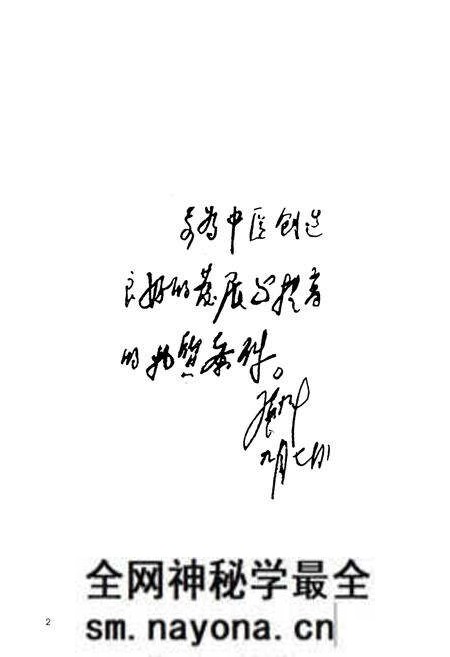 要为中医创造
良好的发展与提高
的物質条件。
九月七日
2
全网神秘学最全
sm.nayona.cn